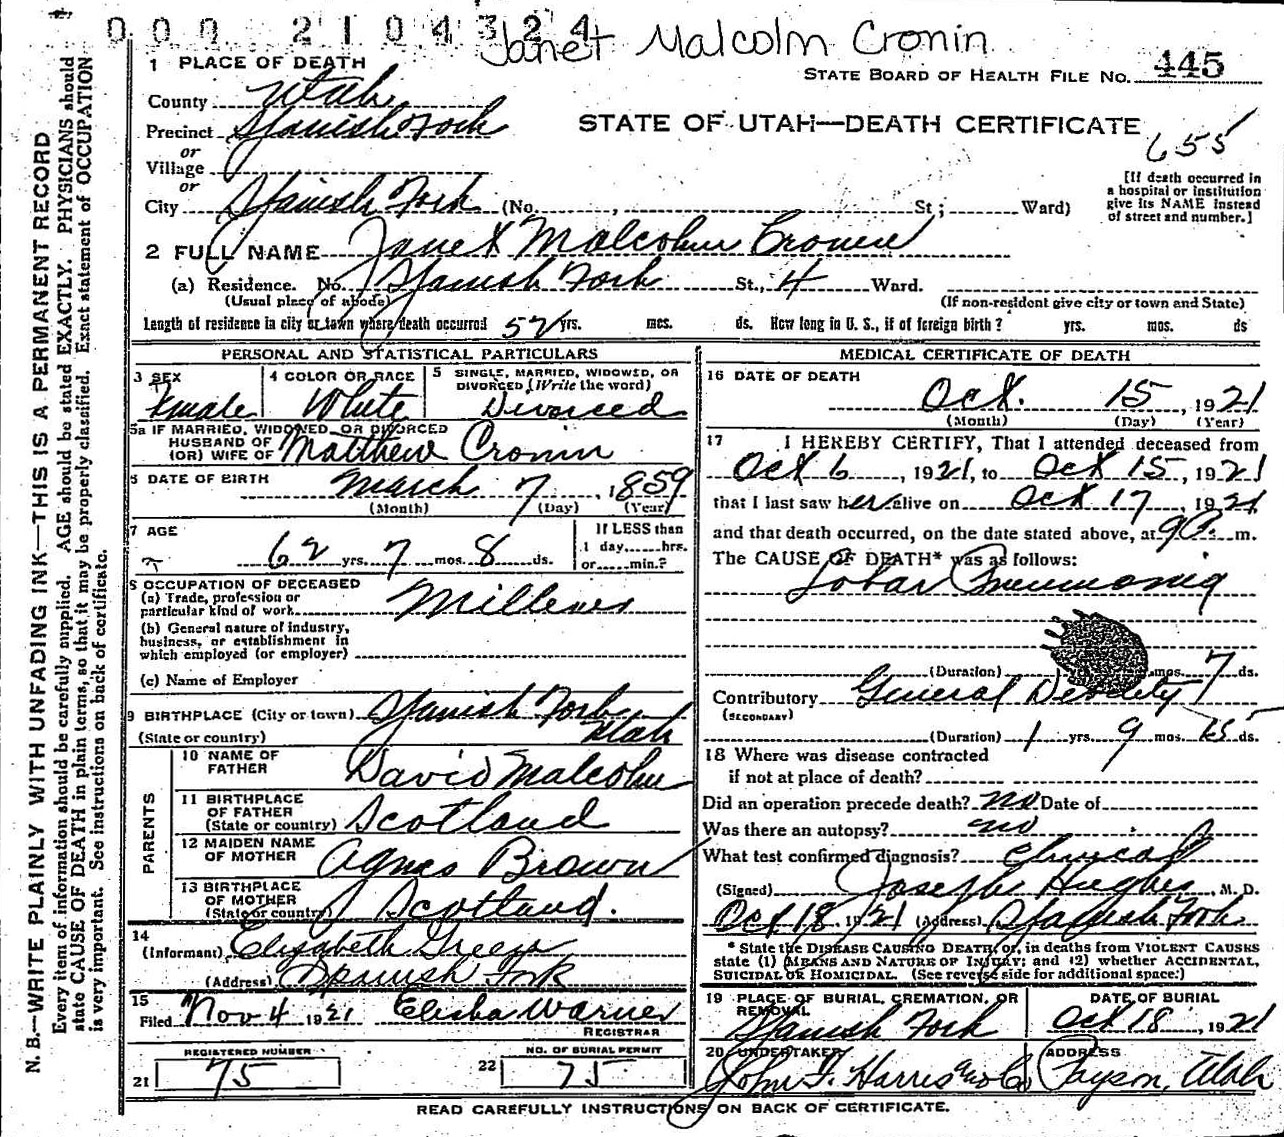 0 0 0 2 1 0 4 3 2 4
Janet Malcolm Cronin
STATE BOARD OF HEALTH FILE NO. 445
1 PLACE OF DEATH
County Utah
Precinct Spanish Fork
STATE OF UTAH—DEATH CERTIFICATE
655
or
Village
or
City Spanish Fork (No. , St; Ward)
[If death occurred in
a hospital or institution
give its NAME instead
of street and number.]
2 FULL NAME Janet Malcolm Cronin
(a) Residence. No. Spanish Fork St., 4 Ward.
(Usual place of abode) (If non-resident give city or town and State)
Length of residence in city or town where death occurred 52 yrs. mos. ds. How long in U. S., if of foreign birth? yrs. mos. ds
PERSONAL AND STATISTICAL PARTICULARS
3 SEX
Female
4 COLOR OR RACE
White
5 SINGLE, MARRIED, WIDOWED, OR
DIVORCED (Write the word)
Divorced
5a IF MARRIED, WIDOWED, OR DIVORCED
HUSBAND OF
(OR) WIFE OF Matthew Cronin
6 DATE OF BIRTH March 7, 1859
(Month) (Day) (Year)
7 AGE
62 yrs. 7 mos. 8 ds.
If LESS than
1 day,......hrs.
or......min.?
8 OCCUPATION OF DECEASED
(a) Trade, profession or
particular kind of work Millener
(b) General nature of industry,
business, or establishment in
which employed (or employer)
(c) Name of Employer
9 BIRTHPLACE (City or town) Spanish Fork
(State or country) Utah
PARENTS
10 NAME OF
FATHER David Malcolm
11 BIRTHPLACE
OF FATHER
(State or country) Scotland
12 MAIDEN NAME
OF MOTHER Agnes Brown
13 BIRTHPLACE
OF MOTHER
(State or country) Scotland.
14
(Informant) Elisabeth
(Address) Spanish Fork
15
Filed Nov 4 1921 Elisha Warner
REGISTRAR
REGISTERED NUMBER
21 75
NO. OF BURIAL PERMIT
22 75
MEDICAL CERTIFICATE OF DEATH
16 DATE OF DEATH
Oct. 15, 1921
(Month) (Day) (Year)
17 I HEREBY CERTIFY, That I attended deceased from
Oct 6, 1921, to Oct 15, 1921
that I last saw her alive on Oct 17, 1921
and that death occurred, on the date stated above, at 9 P. m.
The CAUSE OF DEATH* was as follows:
Lobar Pneumonia
(Duration) mos. 7 ds.
Contributory General Debility
(SECONDARY)
(Duration) 1 yrs. 9 mos. 15 ds.
18 Where was disease contracted
if not at place of death?
Did an operation precede death? no Date of
Was there an autopsy? no
What test confirmed diagnosis? Clinical
(Signed) Joseph Hughes, M. D.
Oct 18, 1921 (Address) Spanish Fork
* State the DISEASE CAUSING DEATH, or, in deaths from VIOLENT CAUSES
state (1) MEANS AND NATURE OF INJURY; and (2) whether ACCIDENTAL,
SUICIDAL OR HOMICIDAL. (See reverse side for additional space.)
19 PLACE OF BURIAL, CREMATION, OR
REMOVAL
Spanish Fork
DATE OF BURIAL
Oct 18, 1921
20 UNDERTAKER
John T. Harris and Co
ADDRESS
Payson, Utah
READ CAREFULLY INSTRUCTIONS ON BACK OF CERTIFICATE.
N. B.—WRITE PLAINLY WITH UNFADING INK—THIS IS A PERMANENT RECORD
Every item of information should be carefully supplied. AGE should be stated EXACTLY. PHYSICIANS should
state CAUSE OF DEATH in plain terms, so that it may be properly classified. Exact statement of OCCUPATION
is very important. See instructions on back of certificate.